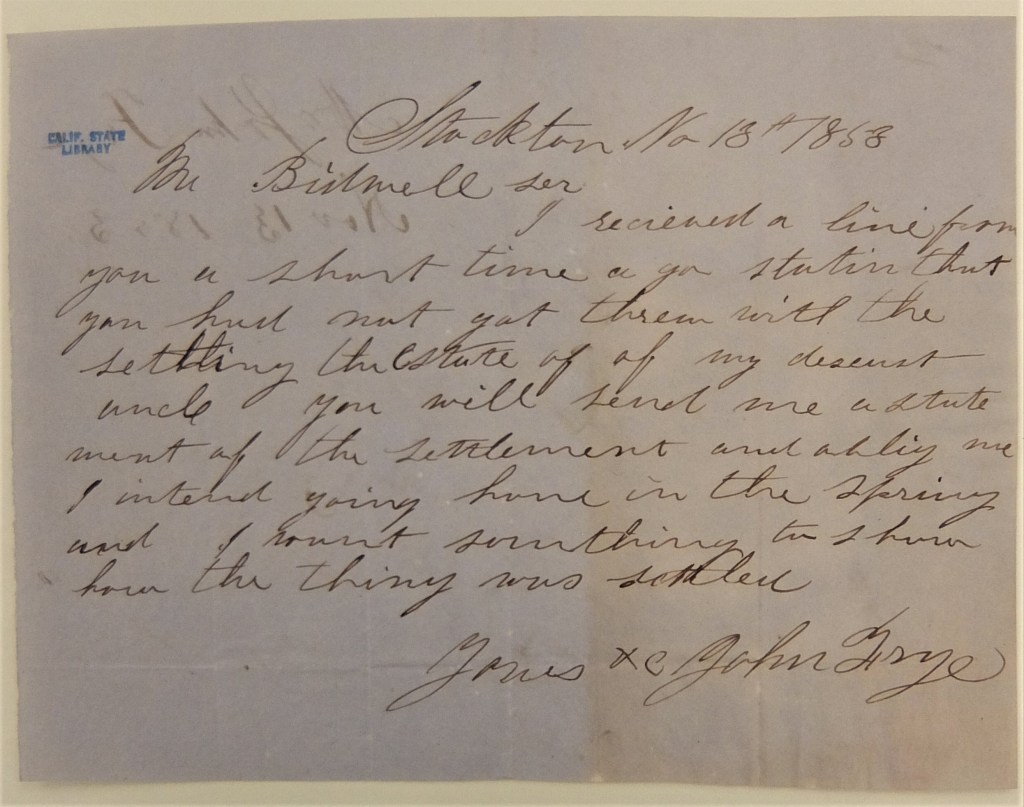 CALIF. STATE
LIBRARY
Stockton No 13th 1853
Mr Bidwell ser
I recieved a line from
you a short time a go statin that
you had not got threw with the
settling the Estate of of my deceast
uncle you will send me a state
ment of the settlement and oblig me
I intend going home in the spring
and I wount somthing to show
how the thing was settled
Yours &c John Frye
Nov 13 1853